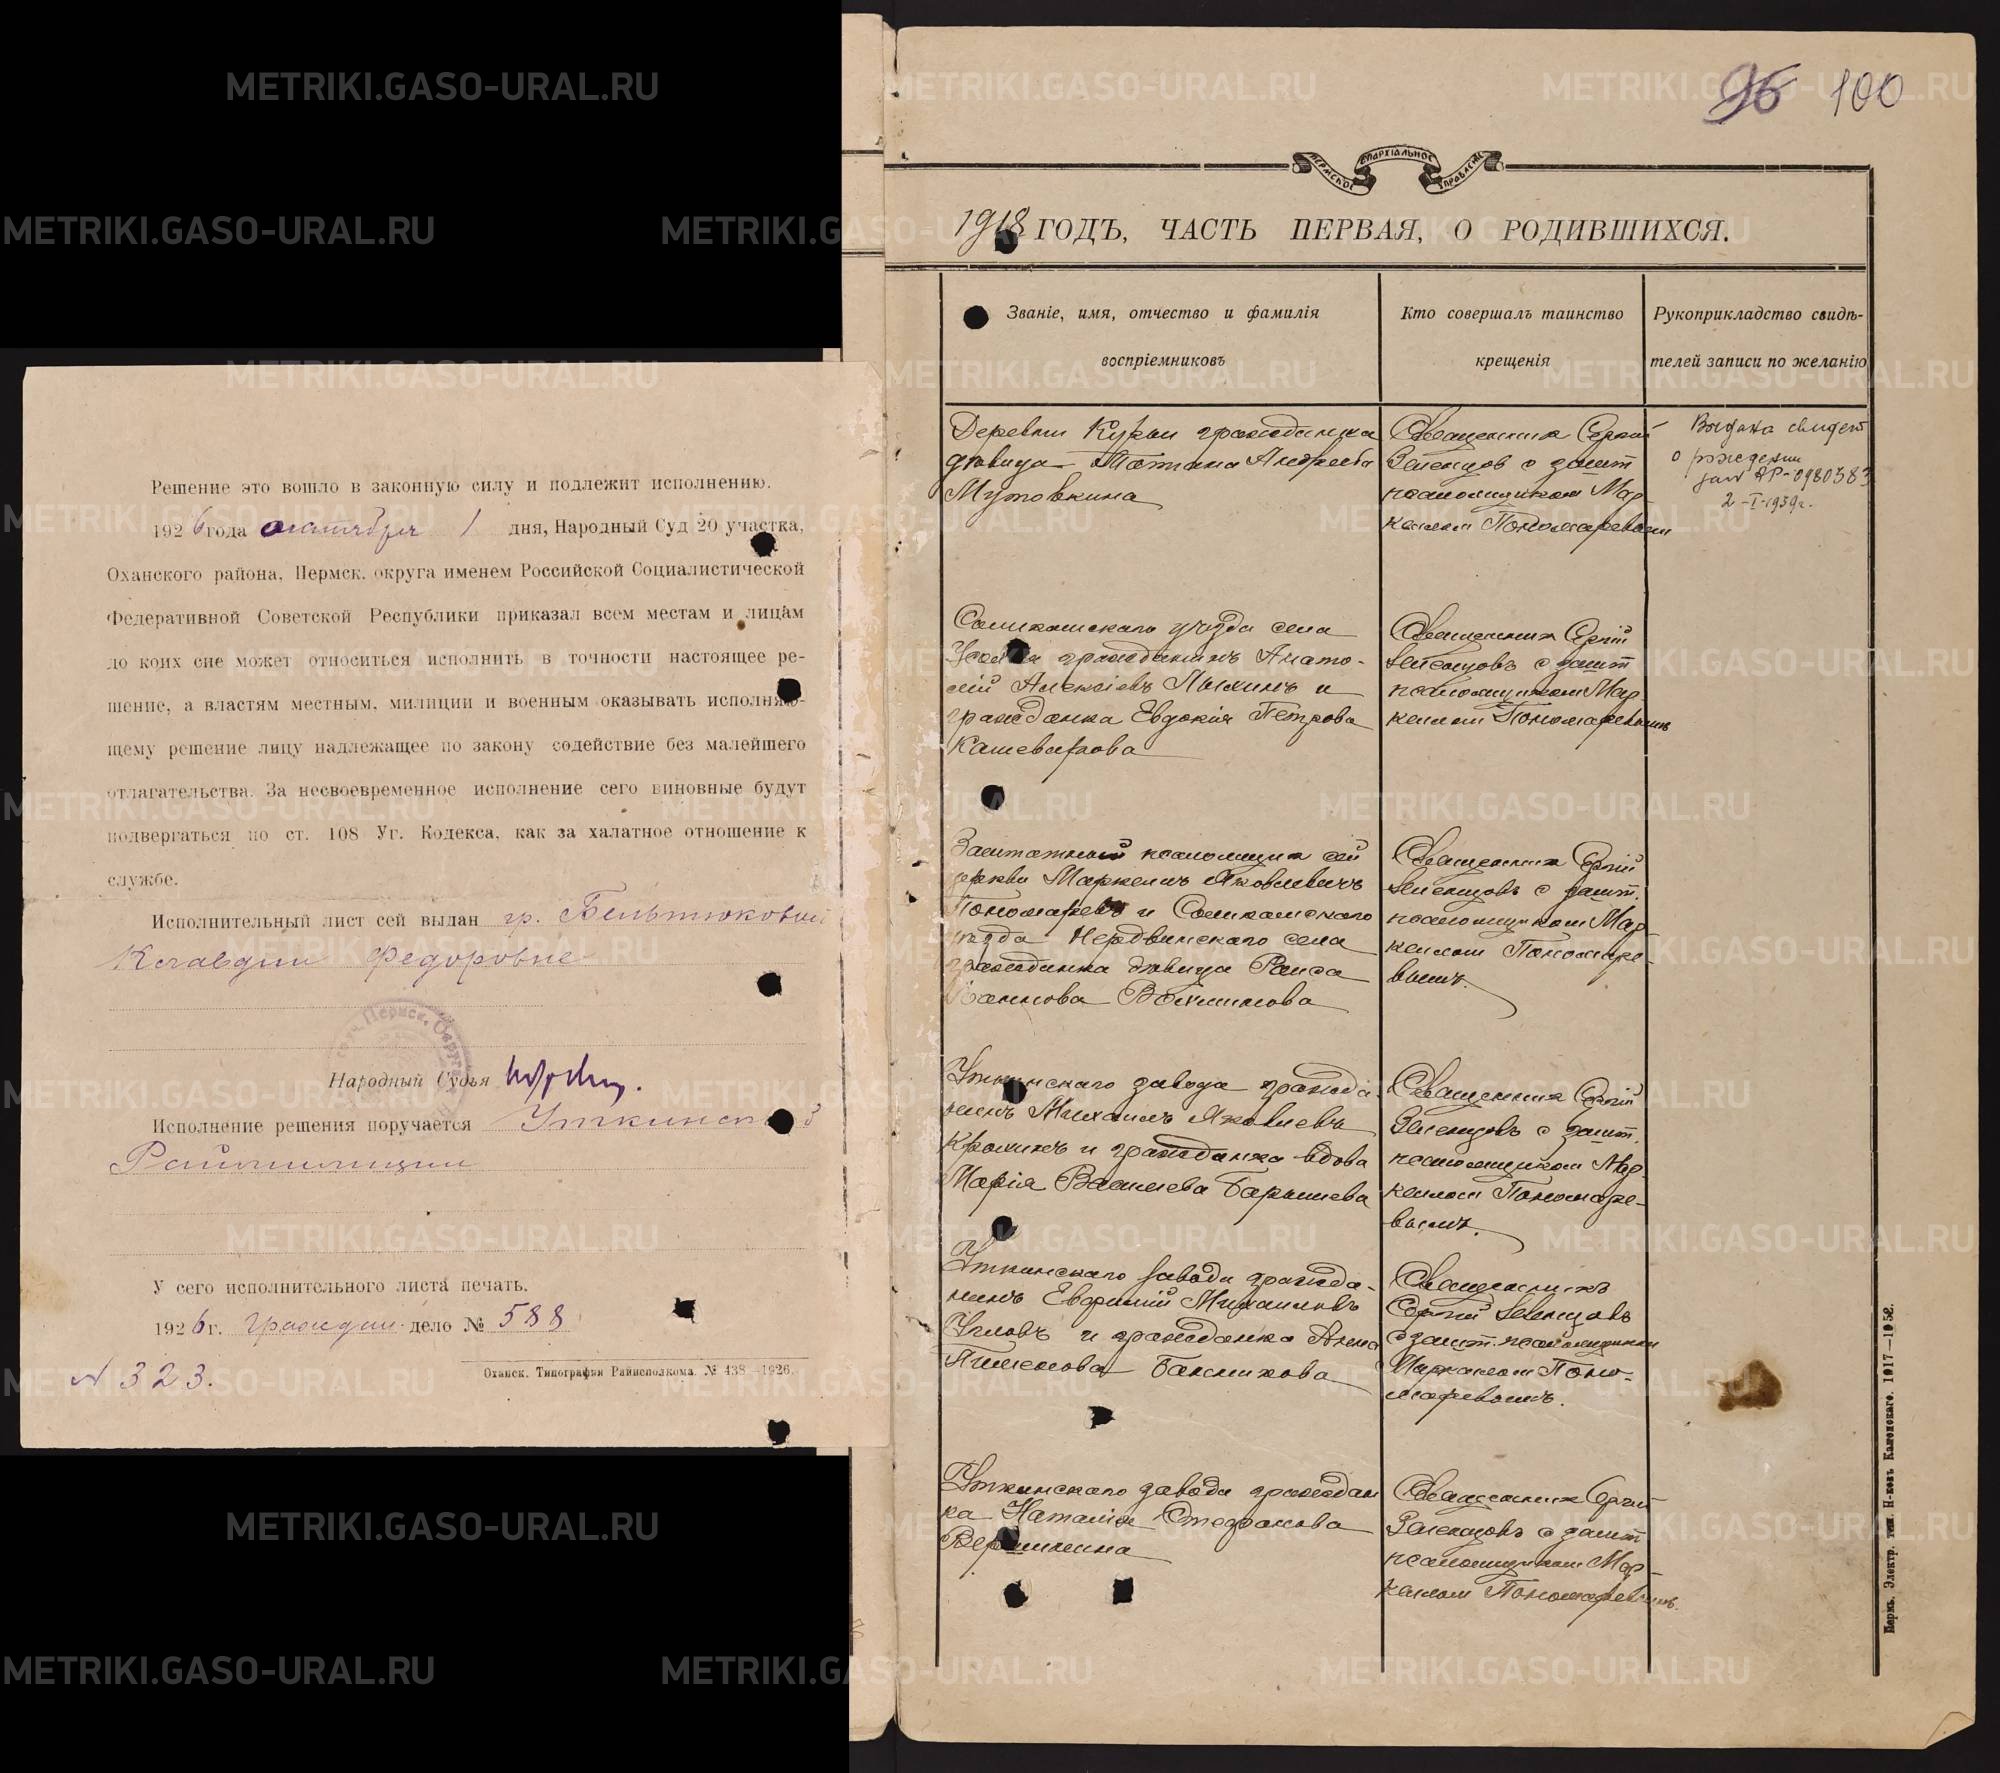 Решение это вошло в законную силу и подлежит исполнению.
1926 года октября 1 дня, Народный Суд 20 участка,
Оханского района, Пермск. округа именем Российской Социалистической
Федеративной Советской Республики приказал всем местам и лицам
до коих сие может относиться исполнить в точности настоящее ре-
шение, а властям местным, милиции и военным оказывать исполняю-
щему решение лицу надлежащее по закону содействие без малейшего
отлагательства. За несвоевременное исполнение сего виновные будут
подвергаться по ст. 108 Уг. Кодекса, как за халатное отношение к
службе.
Исполнительный лист сей выдан гр. Бельтюковой
Клавдии Федоровне
Народный Судья
Исполнение решения поручается Уткинской
Раймилиции
У сего исполнительного листа печать.
1926 г. Граждан. дело № 588
N 323.
Оханск. Типография Райисполкома. № 438—1926.
96 100
ПЕРМСКОЕ ЕПАРХІАЛЬНОЕ УПРАВЛЕНІЕ
1918 ГОДЪ, ЧАСТЬ ПЕРВАЯ, О РОДИВШИХСЯ.
Званіе, имя, отчество и фамилія
воспріемниковъ
Кто совершалъ таинство
крещенія
Рукоприкладство свидѣ-
телей записи по желанію
Деревни Курьи гражданка
дѣвица Татіана Андреева
Мутовкина
Священник Сергій
Зеленцов с зашт
псаломщиком Мар-
келом Пономаревым
Выдано свидет
о рождении
2-I-1939г.
Соликамскаго уѣзда села
гражданинъ Анато-
лій Алексіевъ Лыхинъ и
гражданка Евдокія Петрова
Кашеварова
Священник Сергій
Зеленцовъ с зашт
псаломщиком Мар
келом Пономаревымъ
Заштатный псаломщик сей
церкви Маркелъ Яковлевичъ
Пономаревъ и Соликамскаго
уѣзда Нердвинскаго села
гражданка дѣвица Раиса
Священник Сергій
Зеленцовъ с зашт.
псаломщиком Мар-
келом Пономаре-
вымъ.
Уткинскаго завода гражда-
нинъ Михаилъ Яковлевъ
и гражданка вдова
Марія Васильева Барышева
Священник Сергій
Зеленцовъ с зашт.
псаломщиком Мар-
келом Пономаре-
вымъ.
Уткинскаго завода гражда-
нинъ Евфимій Михаиловъ
Угловъ и гражданка Анна
Пименова
Священникъ
Сергій Зеленцовъ
с зашт. псаломщиком
Маркелом Поно-
маревымъ.
Уткинскаго завода граждан
ка Наталія Стефанова
Вершинина
Священник Сергій
Зеленцовъ с зашт
псаломщиком Мар-
келом Пономаревымъ.
Пермь. Электр. тип. Н-ковъ Каменскаго. 1917—1952.
METRIKI.GASO-URAL.RU